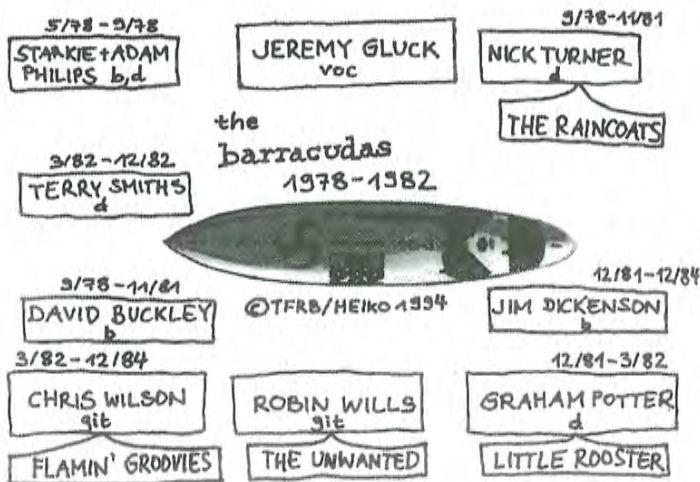 5/78-9/78
STARKIE+ADAM
PHILIPS b,d
JEREMY GLUCK
voc
9/78-11/81
NICK TURNER
d
THE RAINCOATS
the
barracudas
1978-1982
3/82-12/82
TERRY SMITHS
d
9/78-11/81
DAVID BUCKLEY
b
©TFRB/HEIKO 1994
12/81-12/84
JIM DICKENSON
b
3/82-12/84
CHRIS WILSON
git
FLAMIN' GROOVIES
ROBIN WILLS
git
THE UNWANTED
12/81-3/82
GRAHAM POTTER
d
LITTLE ROOSTER